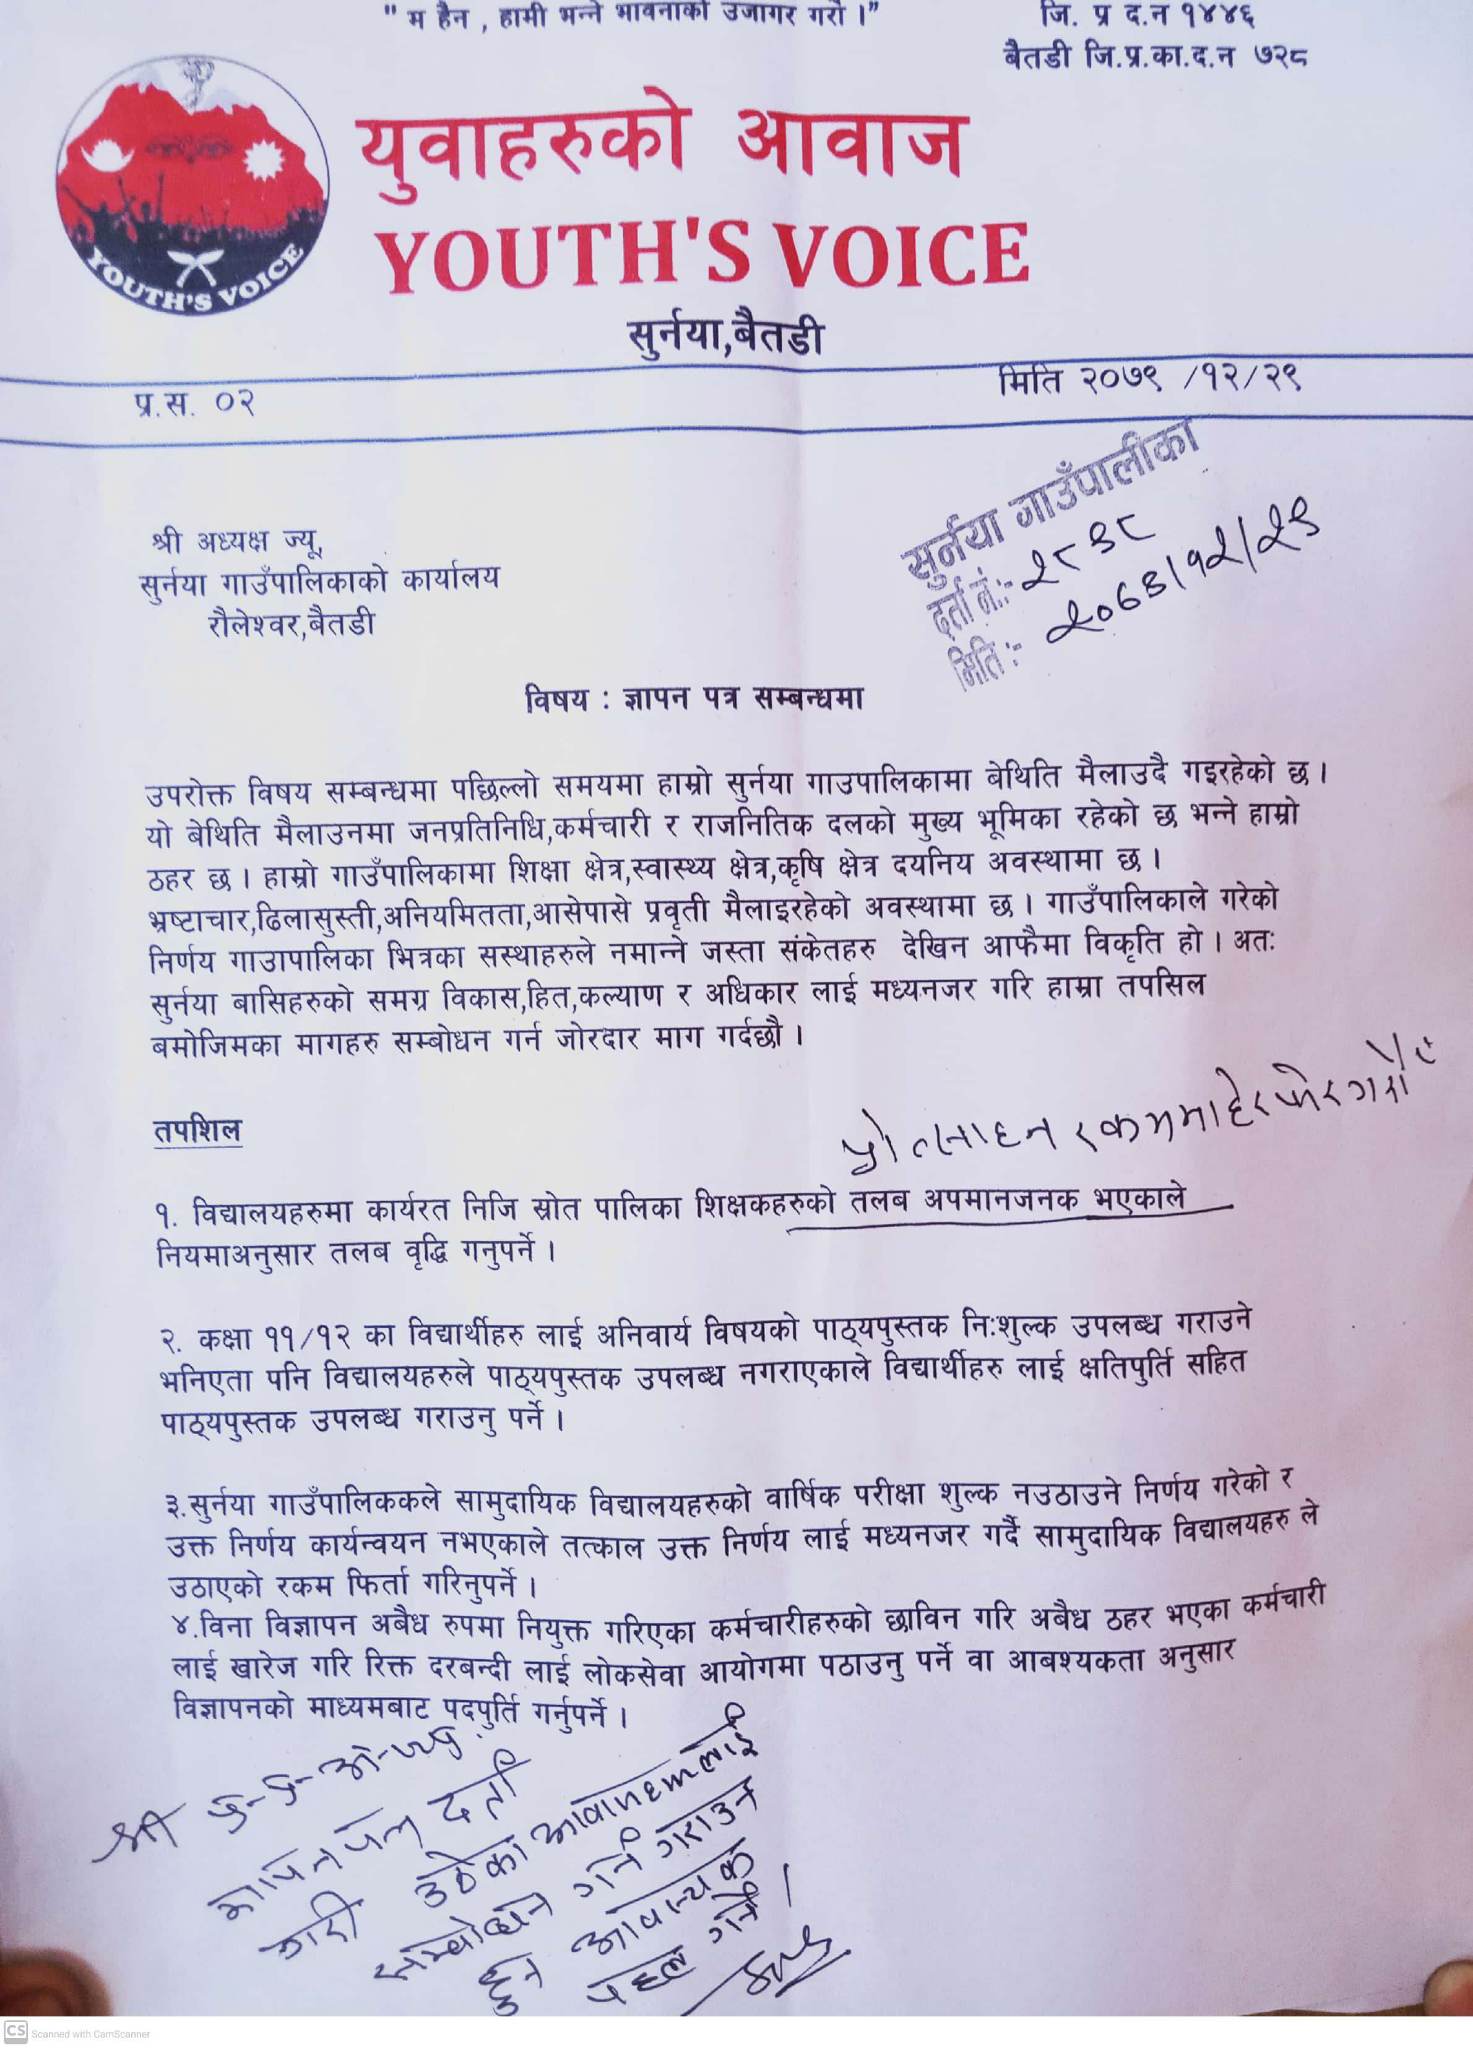 " म हैन , हामी भन्ने भावनाको उजागर गरौं ।"
जि. प्र द.न १४४६
बैतडी जि.प्र.का.द.न ७२८
युवाहरुको आवाज
YOUTH'S VOICE
YOUTH'S VOICE
सुर्नया,बैतडी
प्र.स. ०२
मिति २०७९ /१२/२९
सुर्नया गाउँपालीका
दर्ता नं.:- २८३८
मिति :- २०७९/१२/२९
श्री अध्यक्ष ज्यू,
सुर्नया गाउँपालिकाको कार्यालय
रौलेश्वर,बैतडी
विषय : ज्ञापन पत्र सम्बन्धमा
उपरोक्त विषय सम्बन्धमा पछिल्लो समयमा हाम्रो सुर्नया गाउपालिकामा बेथिति मैलाउदै गइरहेको छ ।
यो बेथिति मैलाउनमा जनप्रतिनिधि,कर्मचारी र राजनितिक दलको मुख्य भूमिका रहेको छ भन्ने हाम्रो
ठहर छ । हाम्रो गाउँपालिकामा शिक्षा क्षेत्र,स्वास्थ्य क्षेत्र,कृषि क्षेत्र दयनिय अवस्थामा छ ।
भ्रष्टाचार,ढिलासुस्ती,अनियमितता,आसेपासे प्रवृती मैलाइरहेको अवस्थामा छ । गाउँपालिकाले गरेको
निर्णय गाउापालिका भित्रका सस्थाहरुले नमान्ने जस्ता संकेतहरु देखिन आफैमा विकृति हो । अतः
सुर्नया बासिहरुको समग्र विकास,हित,कल्याण र अधिकार लाई मध्यनजर गरि हाम्रा तपसिल
बमोजिमका मागहरु सम्बोधन गर्न जोरदार माग गर्दछौ ।
प्रोत्साहन रकममा हेरफेर गरौं
तपशिल
१. विद्यालयहरुमा कार्यरत निजि स्रोत पालिका शिक्षकहरुको तलब अपमानजनक भएकाले
नियमाअनुसार तलब वृद्धि गनुपर्ने ।
२. कक्षा ११/१२ का विद्यार्थीहरु लाई अनिवार्य विषयको पाठ्यपुस्तक नि:शुल्क उपलब्ध गराउने
भनिएता पनि विद्यालयहरुले पाठ्यपुस्तक उपलब्ध नगराएकाले विद्यार्थीहरु लाई क्षतिपुर्ति सहित
पाठ्यपुस्तक उपलब्ध गराउनु पर्ने ।
३.सुर्नया गाउँपालिककले सामुदायिक विद्यालयहरुको वार्षिक परीक्षा शुल्क नउठाउने निर्णय गरेको र
उक्त निर्णय कार्यन्वयन नभएकाले तत्काल उक्त निर्णय लाई मध्यनजर गर्दै सामुदायिक विद्यालयहरु ले
उठाएको रकम फिर्ता गरिनुपर्ने ।
४.विना विज्ञापन अबैध रुपमा नियुक्त गरिएका कर्मचारीहरुको छाविन गरि अबैध ठहर भएका कर्मचारी
लाई खारेज गरि रिक्त दरबन्दी लाई लोकसेवा आयोगमा पठाउनु पर्ने वा आबश्यकता अनुसार
विज्ञापनको माध्यमबाट पदपुर्ति गर्नुपर्ने ।
श्री प्र-प्र-अ-ज्यू
ज्ञापन पत्र दर्ता
गरी उठेका आवाजहरूलाई
सम्बोधन गर्न गराउन
हुन आवश्यक
पहल गर्ने ।
CS Scanned with CamScanner